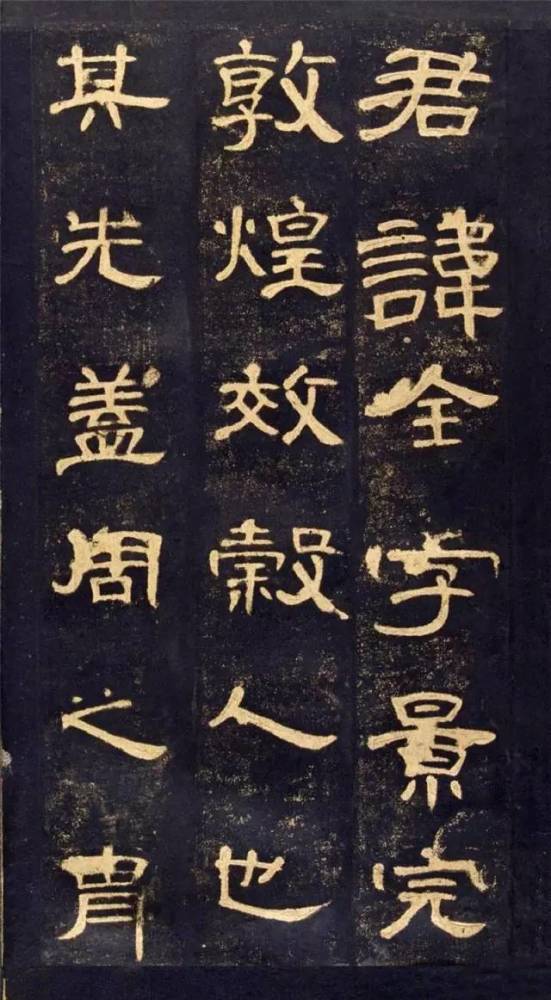 君諱全字景完
敦煌效穀人也
其先蓋周之冑